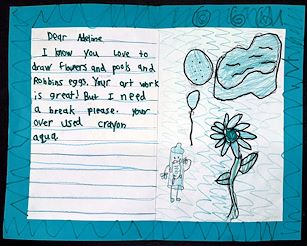 Dear Adeline
I know you love to
draw flowers and pools and
Robbins eggs. Your art work
is great! But I need
a break please. Your
over used crayon
aqua